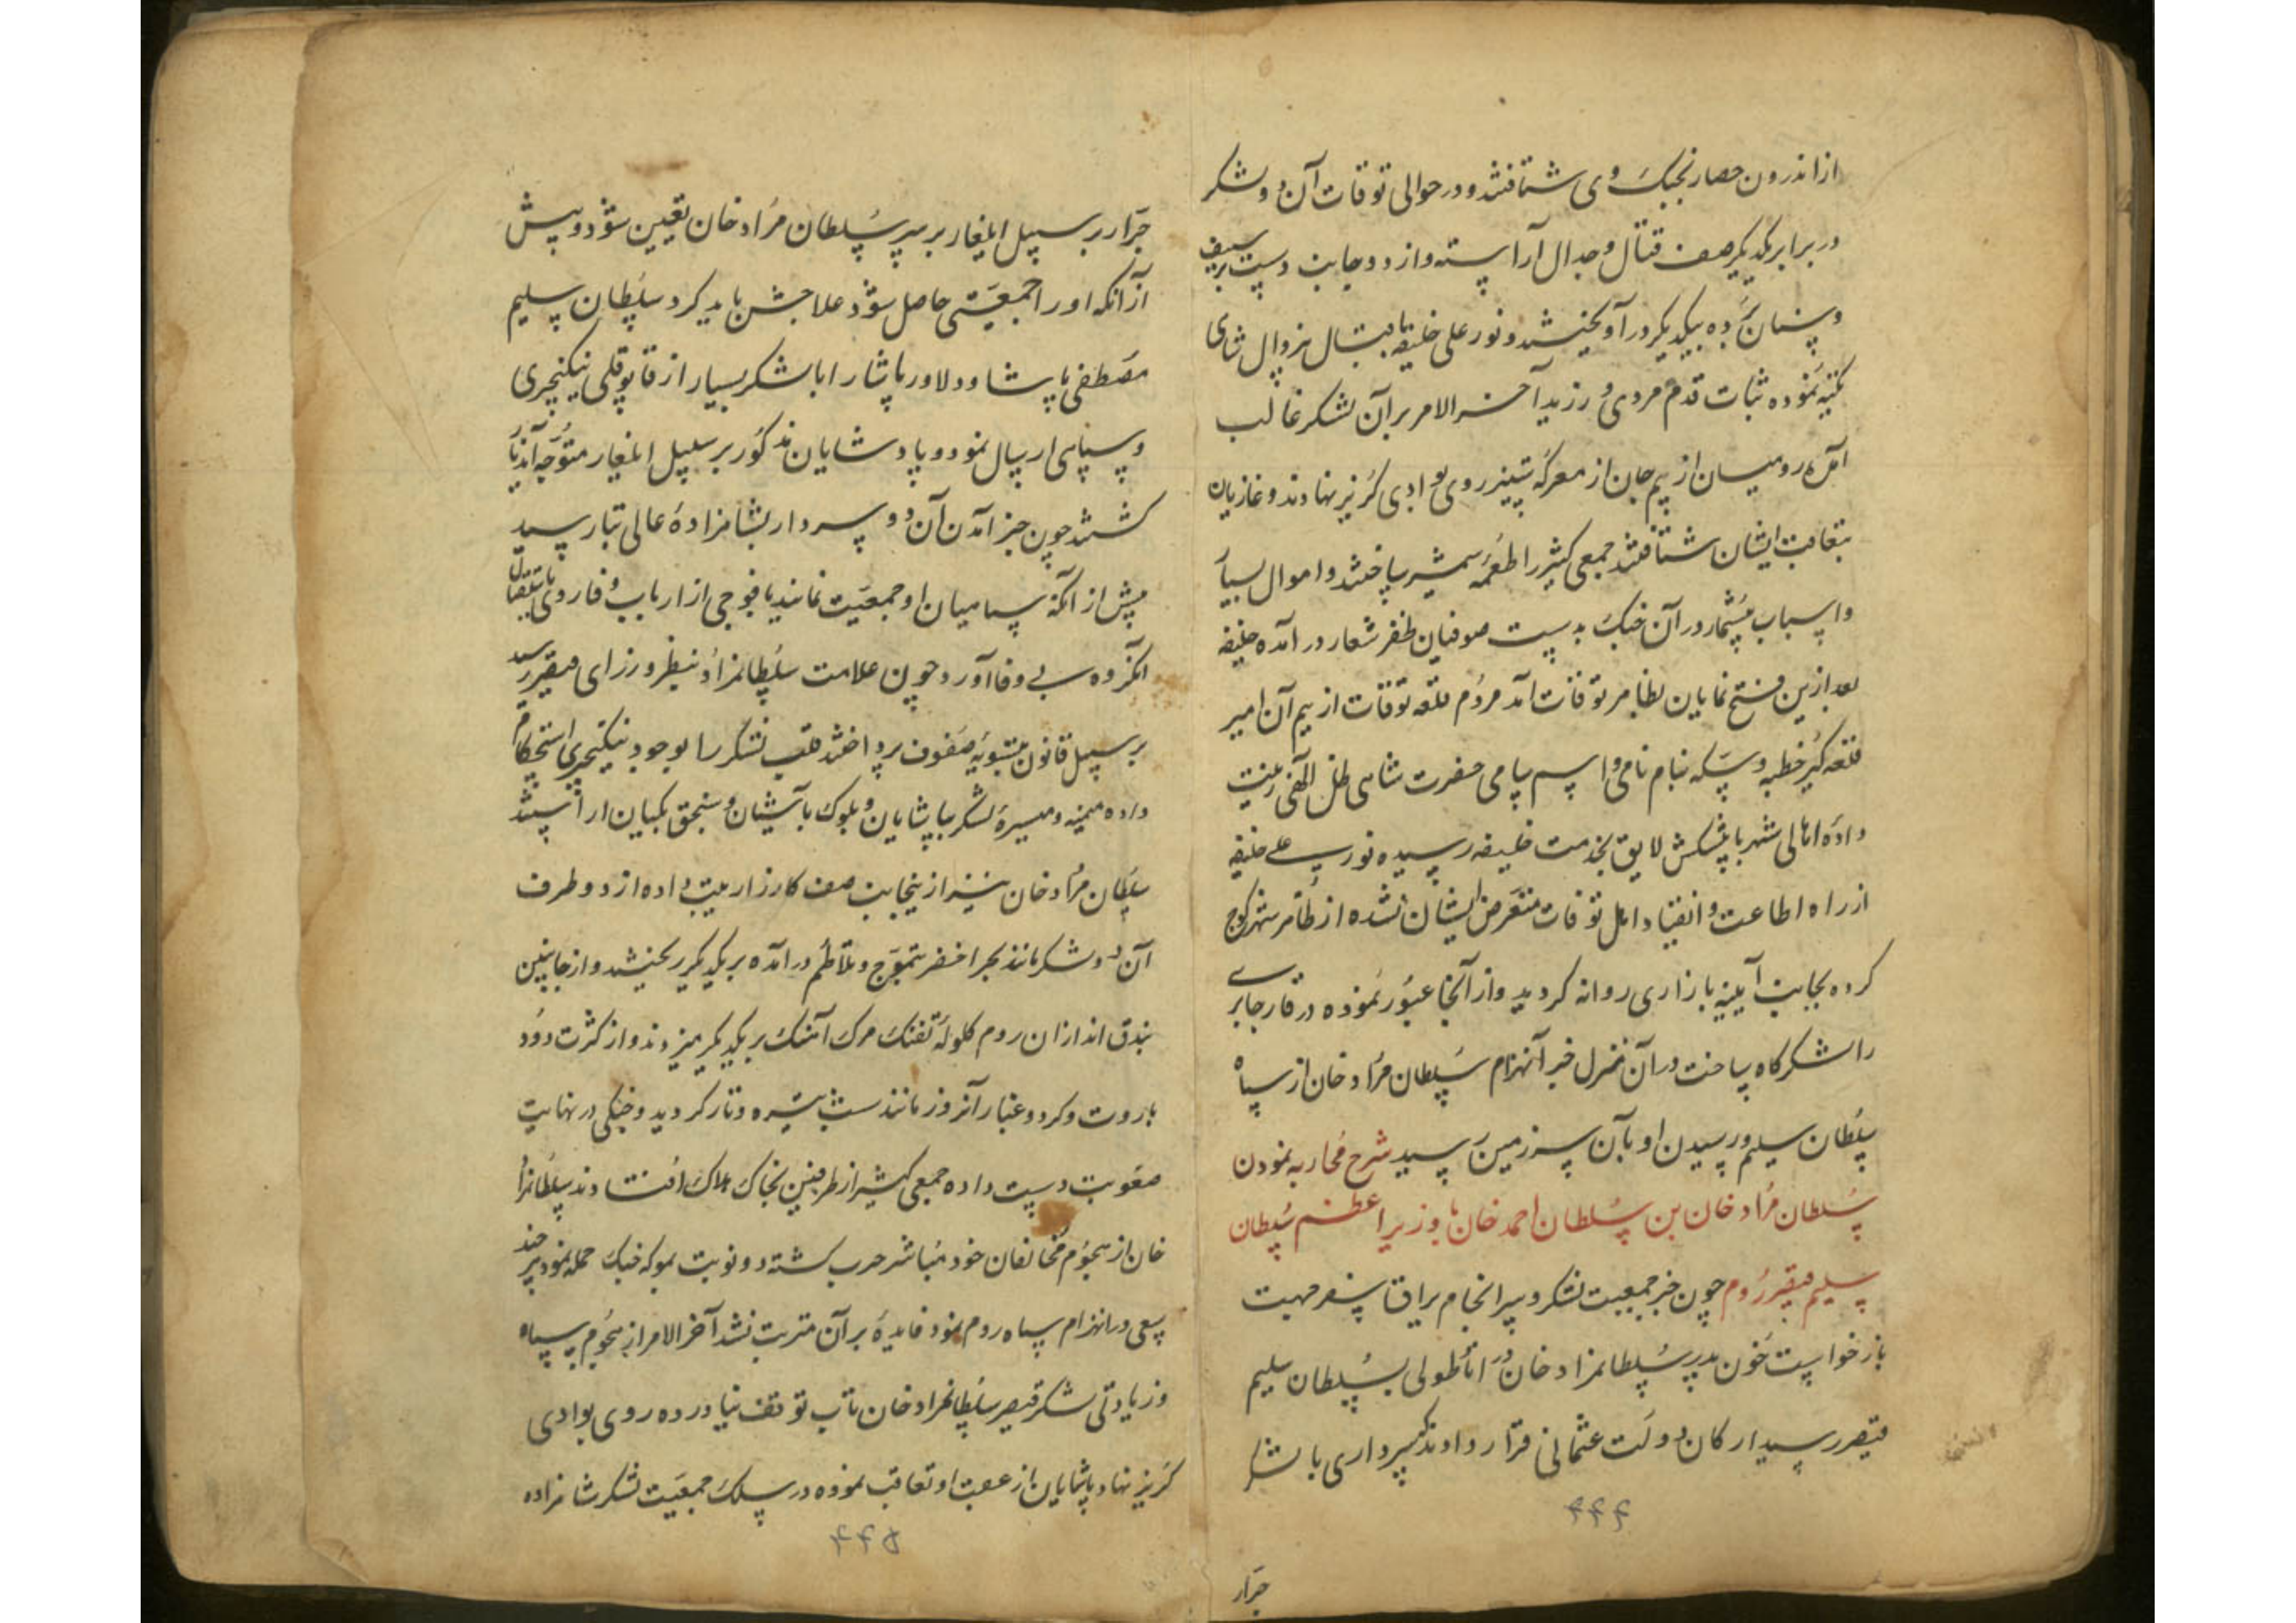 از اندرون حصار بجنگ وی شتافتند و در حوالی توقات آن دو لشکر
در برابر یکدیگر صف قتال و جدال آراسته و از دو جانب دست بسیف
و سنان برده بیکدیگر درآویختند و نور علی خلیفه باقبال بیزوال شاهی
تکیه نموده ثبات قدم مردی ورزید آخر الامر بر آن لشکر غالب
آمده رومیان از بیم جان از معرکه ستیز روی بوادی گریز نهادند و غازیان
بتعاقب ایشان شتافتند جمعی کثیر را طعمه شمشیر ساختند و اموال بسیار
و اسباب بیشمار در آن جنگ بدست صوفیان ظفر شعار در آمده خلیفه
بعد ازین فتح نمایان بظاهر توقات آمد مردم قلعه توقات از بیم آن امیر
قلعه گیر خطبه و سکه بنام نامی و اسم سامی حضرت شاهی ظل الهی زینت
داده اهالی شهر با پیشکش لایق بخدمت خلیفه رسیده نور علی خلیفه
از راه اطاعت و انقیاد اهل توقات متعرض ایشان نشده از ظاهر شهر کوچ
کرده بجانب آیینه بازاری روانه گردید و از آنجا عبور نموده در قار جابری
را لشکرگاه ساخت در آن منزل خبر انهزام سلطان مراد خان از سپاه
سلطان سلیم و رسیدن او بآن سرزمین رسید شرح محاربه نمودن
سلطان مراد خان بن سلطان احمد خان با وزیر اعظم سلطان
سلیم قیصر روم چون خبر جمعیت لشکر و سرانجام یراق سفر جهت
بازخواست خون پدر سلطانمراد خان در اناطولی بسلطان سلیم
قیصر رسید ارکان دولت عثمانی قرار دادند که سرداری با لشکر
۴۴۴
جرار
جرار بر سبیل ایلغار بر سر سلطان مراد خان تعیین شود و پیش
از آنکه او را جمعیتی حاصل شود علاجش باید کرد سلطان سلیم
مصطفی پاشا و دلاور پاشا را با لشکر بسیار از قاپوقلی ینکیچری
و سپاهی ارسال نمود و پادشایان مذکور بر سبیل ایلغار متوجه آندیار
گشتند چون خبر آمدن آن دو سردار بشاهزاده عالی تبار رسید
پیش از آنکه سپاهیان او جمعیت نمایند با فوجی از ارباب وفا روی باستقبال
آنگروه بی وفا آورد چون علامت سلطانمراد بنظر وزرای قیصر رسید
بر سبیل قانون بتسویه صفوف پرداختند قلب لشکر را بوجود ینکیچری استحکام
داده میمنه و میسره لشکر بپاشایان و بلوک باشیان و سنجق بکیان آراستند
سلطان مراد خان نیز ازینجانب صف کارزار ترتیب داده از دو طرف
آن دو لشکر مانند بحر اخضر بتموج و تلاطم درآمده بر یکدیگر ریختند و از جانبین
بندق اندازان روم گلوله تفنگ مرگ آهنگ بر یکدیگر میزدند و از کثرت دود
باروت و گرد و غبار آنروز مانند شب تیره و تار گردید و جنگی در نهایت
صعوبت دست داده جمعی کثیر از طرفین بخاک هلاک افتادند سلطانمراد
خان از هجوم مخالفان خود مباشر حرب گشته دو نوبت بمعرکه جنگ حمله نمود هر چند
سعی در انهزام سپاه روم نمود فایده بر آن مترتب نشد آخر الامر از هجوم سپاه
و زیادتی لشکر قیصر سلطانمراد خان تاب توقف نیاورده روی بوادی
گریز نهاد پاشایان از عقب او تعاقب نموده در سلک جمعیت لشکر شاهزاده
۴۴۵